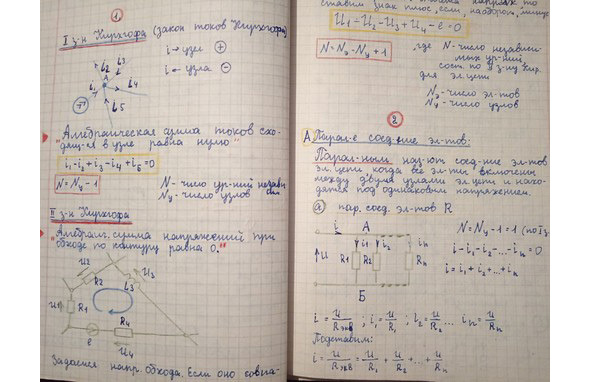 1
I з-н Кирхгофа (закон токов Кирхгофа)
i → узел +
i ← узла −
i2 i3
A
i1 i4
i5
"Алгебраическая сумма токов схо-
дящ-ся в узле равна нулю"
i1-i2+i3-i4+i5=0
N=Ny-1
N - число ур-ний незави
Ny - число узлов сим
II з-н Кирхгофа
"Алгебраич. сумма напряжений при
обходе по контуру равна 0."
U2
R2
U3
R3
U1 R1
e
R4
U4
Задаемся напр. обхода. Если оно совпа-
ставим знак плюс, если, наоборот, минус
U1-U2-U3+U4-e=0
N=Nэ-Ny+1
где N-число независи
мых ур-ний,
сост. по II з-ну Кир.
для эл. цепи
Nэ-число эл-тов
Ny-число узлов
2
А Парал-е соед-ние эл-тов:
Парал-ным наз-ют соед-ние эл-тов
эл. цепи, когда все эл-ты включены
между двумя узлами эл. цепи и нахо-
дятся под одинаковым напряжением.
а) пар. соед. эл-тов R
i А
i1 i2 in
U R1 R2 Rn
Б
N=Ny-1=1 (по I з
i-i1-i2-...-in=0
i=i1+i2+...+in
i=U/Rэкв ; i1=U/R1 ; i2=U/R2 ... in=U/Rn
Подставим:
i=U/Rэкв=U/R1+U/R2+...+U/Rn